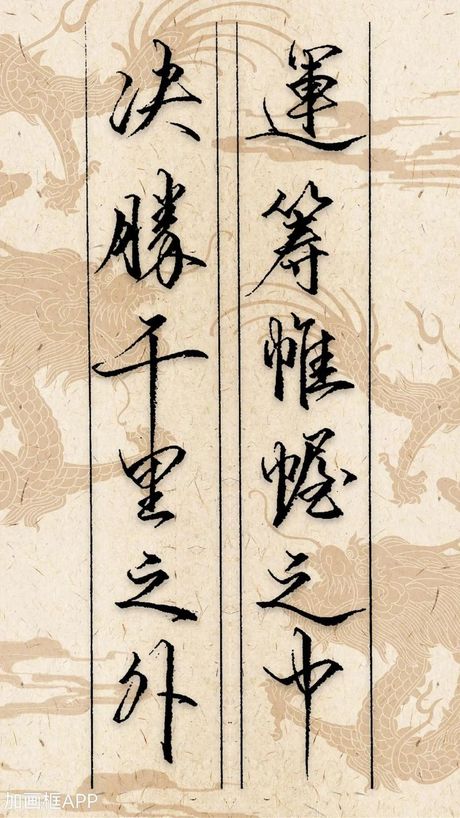 運籌帷幄之中
决勝千里之外
加画框APP